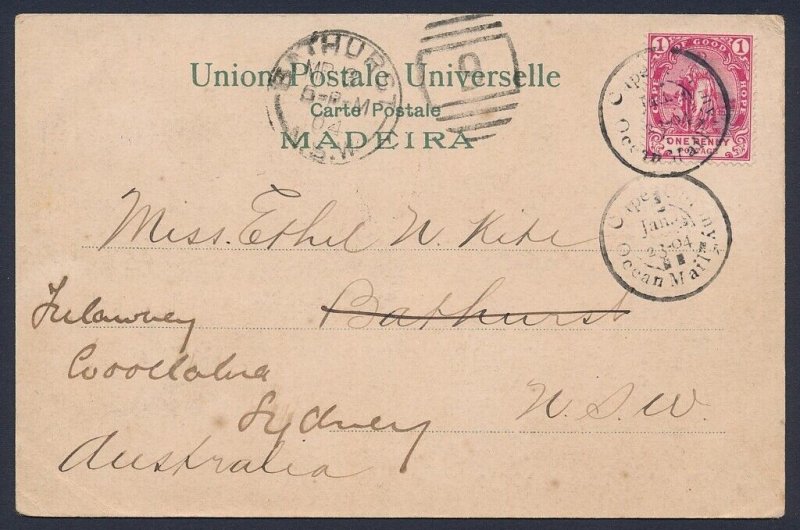 Union Postale Universelle
Carte Postale
MADEIRA
BATHURST
N.S.W
9
CAPE OF GOOD HOPE
1 1
ONE PENNY
POSTAGE
Cape Colony
Ocean Mail
Cape Colony
2
Jan.
23-04
Ocean Mail
Miss. Ethel N. Kite
Bathurst
N. S. W.
Trelawney
Woollahra
Sydney
Australia